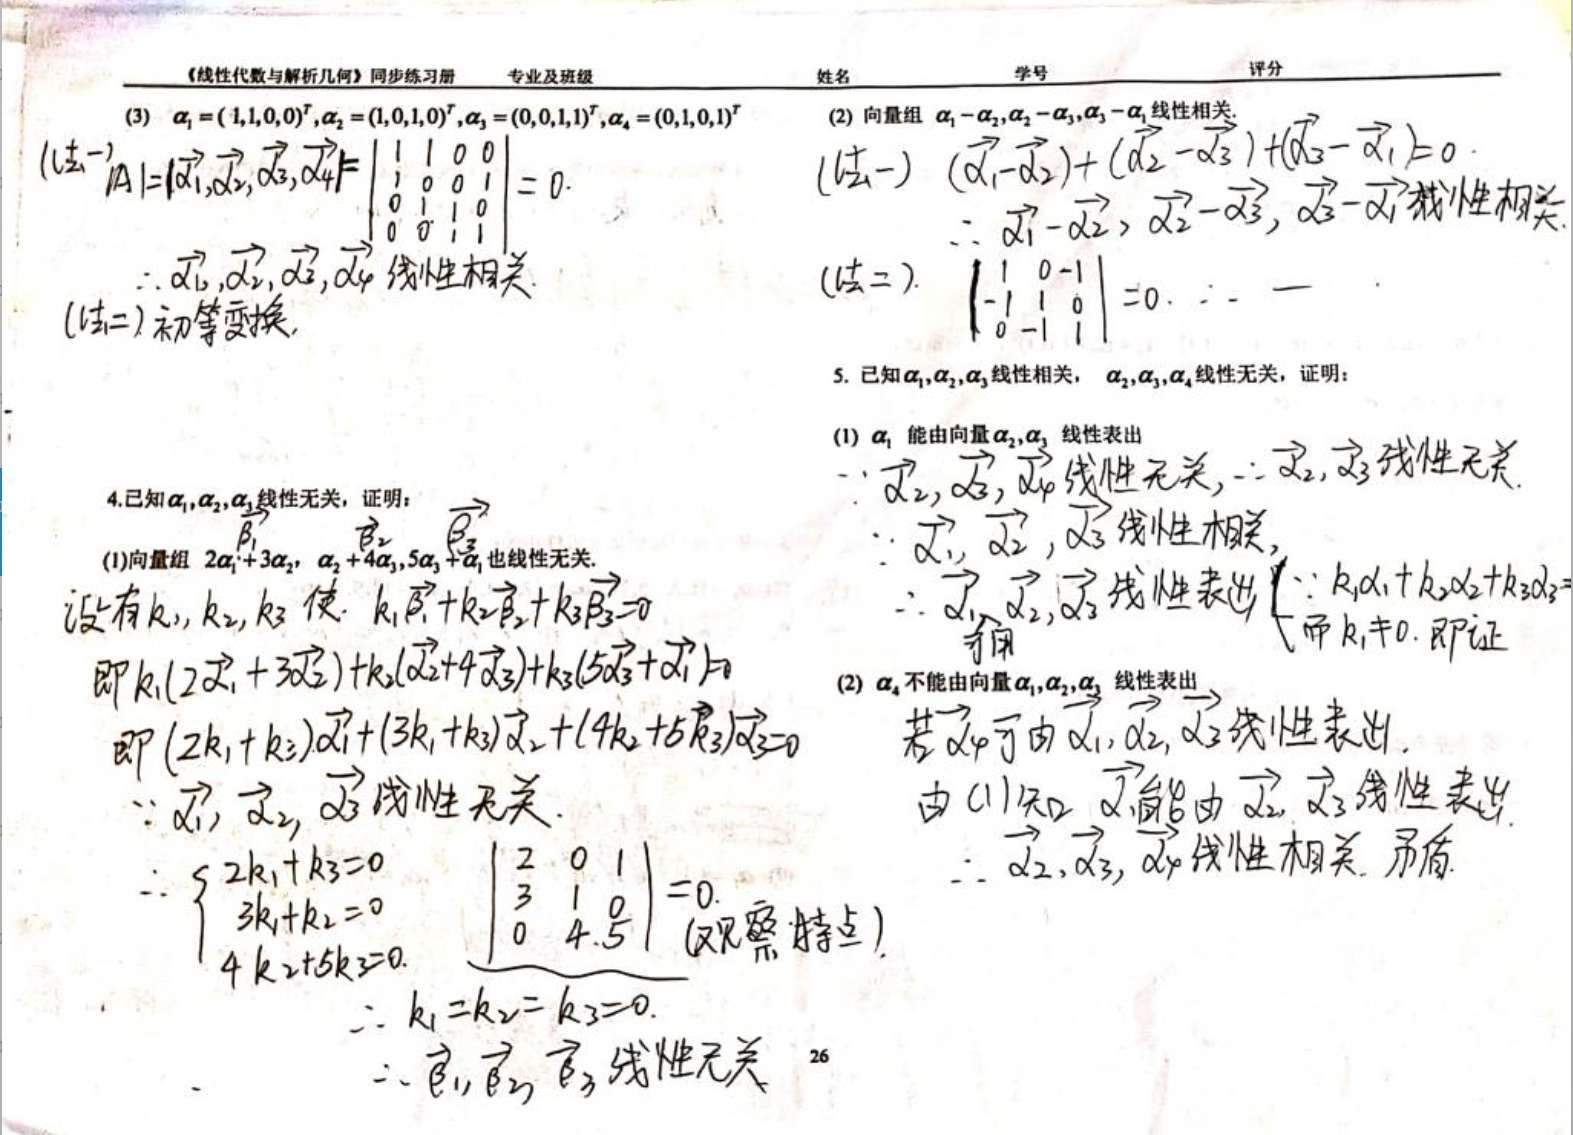 《线性代数与解析几何》同步练习册 专业及班级 姓名 学号 评分
(3) α₁=(1,1,0,0)ᵀ,α₂=(1,0,1,0)ᵀ,α₃=(0,0,1,1)ᵀ,α₄=(0,1,0,1)ᵀ
(法一) |A|=|α₁→,α₂→,α₃→,α₄→|= | 1 1 0 0 |
| 1 0 0 1 | =0.
| 0 1 1 0 |
| 0 0 1 1 |
∴ α₁→,α₂→,α₃→,α₄→ 线性相关.
(法二) 初等变换.
4.已知α₁,α₂,α₃线性无关，证明：
β₁→ β₂→ β₃→
(1)向量组 2α₁+3α₂， α₂+4α₃,5α₃+α₁也线性无关.
设有k₁,k₂,k₃ 使 k₁β₁→+k₂β₂→+k₃β₃→=0
即k₁(2α₁→+3α₂→)+k₂(α₂→+4α₃→)+k₃(5α₃→+α₁→)=0
即(2k₁+k₃)α₁→+(3k₁+k₃)α₂→+(4k₂+5k₃)α₃→=0
∵ α₁→,α₂→,α₃→线性无关.
∴ { 2k₁+k₃=0 | 2 0 1 |
3k₁+k₂=0 | 3 1 0 | =0.
4k₂+5k₃=0. | 0 4 5 | (观察特点).
∴ k₁=k₂=k₃=0.
∴ β₁→,β₂→,β₃→线性无关
(2) 向量组 α₁-α₂,α₂-α₃,α₃-α₁线性相关.
(法一) (α₁→-α₂→)+(α₂→-α₃→)+(α₃→-α₁→)=0.
∴ α₁→-α₂→,α₂→-α₃→,α₃→-α₁→线性相关.
(法二). | 1 0 -1 |
| -1 1 0 | =0. ∴ —
| 0 -1 1 |
5. 已知α₁,α₂,α₃线性相关， α₂,α₃,α₄线性无关，证明：
(1) α₁ 能由向量α₂,α₃ 线性表出
∵ α₂→,α₃→,α₄→线性无关,∴ α₂→,α₃→线性无关.
∵ α₁→,α₂→,α₃→线性相关,
∴ α₁→ α₂→,α₃→线性表出 { ∵ k₁α₁+k₂α₂+k₃α₃=
可用 而k₁≠0.即证
(2) α₄不能由向量α₁,α₂,α₃ 线性表出
若α₄→可由α₁→,α₂→,α₃→线性表出.
由(1)知 α₁→能由α₂→,α₃→线性表出.
∴ α₂→,α₃→,α₄→线性相关. 矛盾.
26